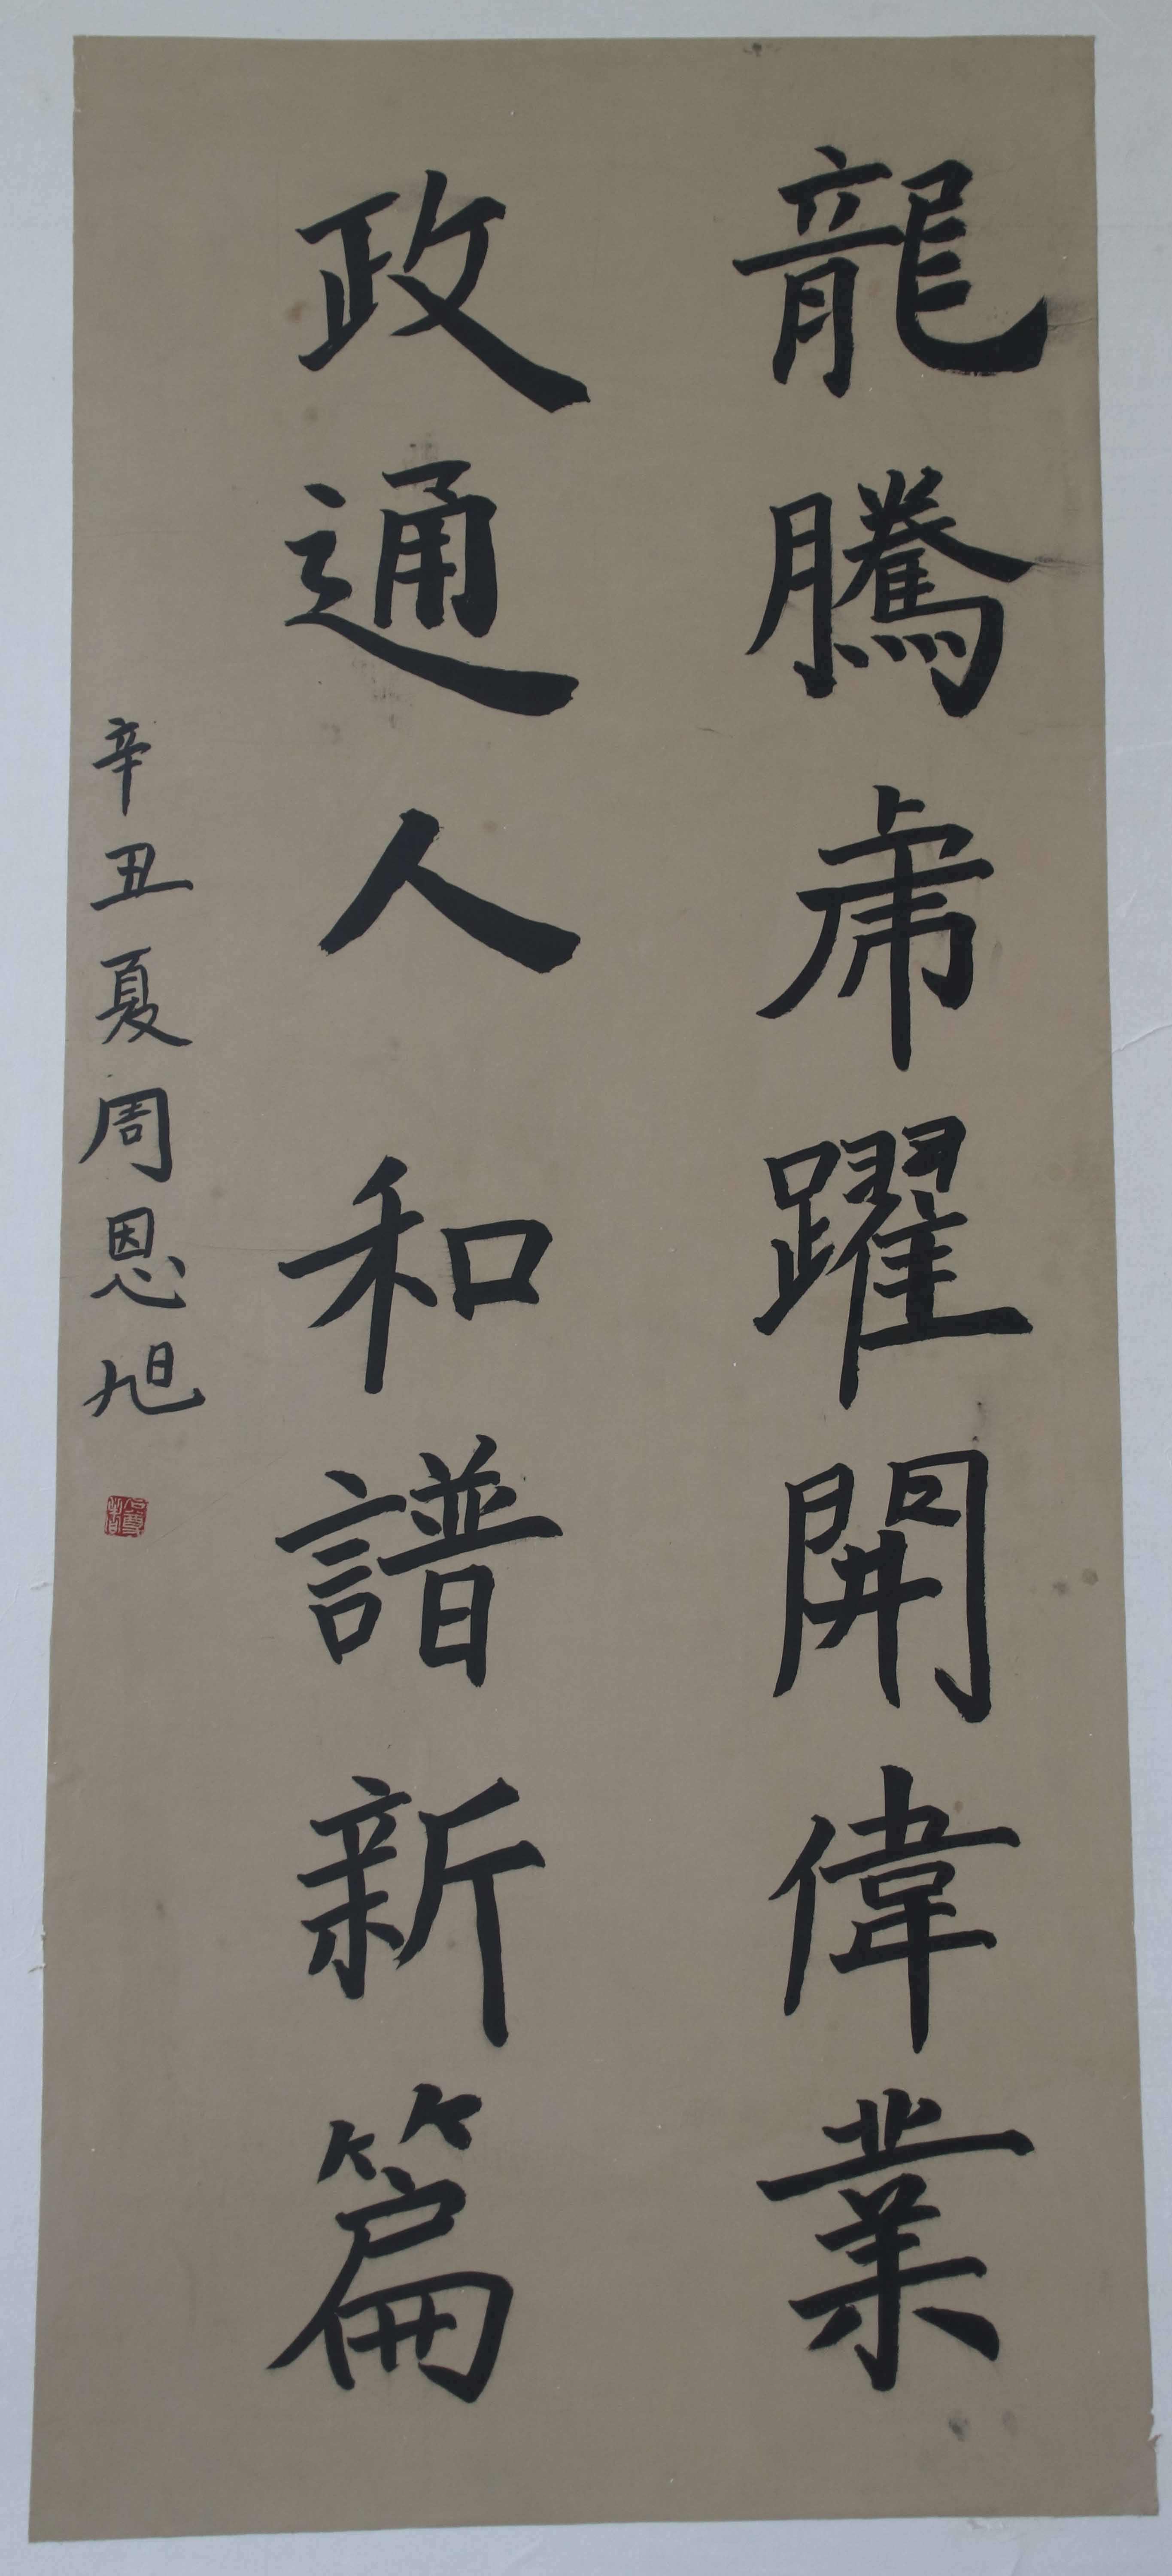 龍騰虎躍開偉業
政通人和譜新篇
辛丑夏周恩旭